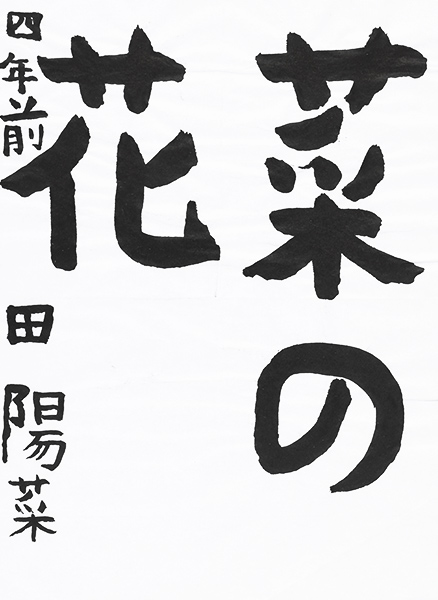 菜の
花
四年前田陽菜